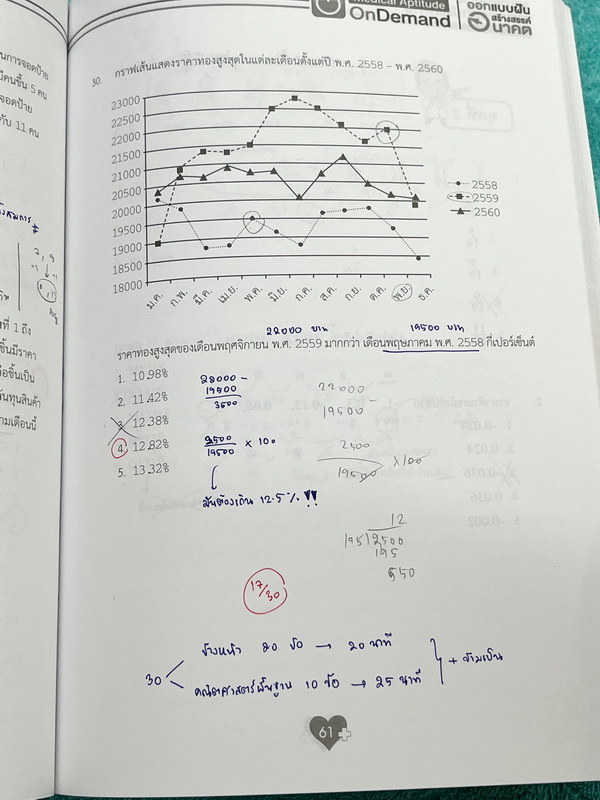 Medical Aptitude
OnDemand
ออกแบบฝัน
สร้างสรรค์
อนาคต
นการจอดป้าย
มีคนขึ้น 5 คน
จอดป้าย
กับ 11 คน
ที่ 1 ถึง
ชิ้นมีราคา
อชิ้นเป็น
ต้นทุนสินค้า
ามเดือนนี้
30. กราฟเส้นแสดงราคาทองสูงสุดในแต่ละเดือนตั้งแต่ปี พ.ศ. 2558 – พ.ศ. 2560
23000
22500
22000
21500
21000
20500
20000
19500
19000
18500
18000
ม.ค. ก.พ. มี.ค. เม.ย. พ.ค. มิ.ย. ก.ค. ส.ค. ก.ย. ต.ค. พ.ย. ธ.ค.
2558
2559
2560
22000 บาท 19500 บาท
ราคาทองสูงสุดของเดือนพฤศจิกายน พ.ศ. 2559 มากกว่า เดือนพฤษภาคม พ.ศ. 2558 กี่เปอร์เซ็นต์
1. 10.98%
2. 11.42%
3. 12.38%
4. 12.82%
5. 13.32%
22000 -
19500
2500
19500 × 100
มันต้องเกิน 12.5% !!
22000 -
19500
2500
19500 ×100
12
195 2500
195
550
17/30
30
ข้างหน้า 20 ข้อ → 20 นาที
คณิตศาสตร์พื้นฐาน 10 ข้อ → 25 นาที
+ ข้ามเป็น
61